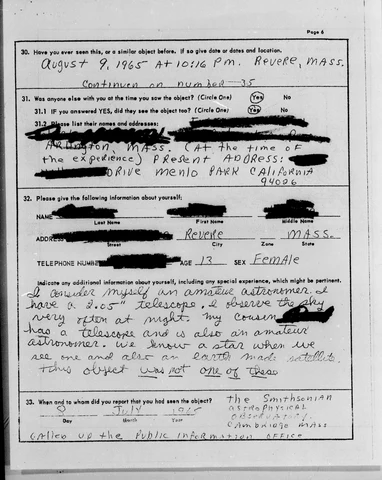 Page 6
30. Have you ever seen this, or a similar object before. If so give date or dates and location.
August 9, 1965 At 10:16 Pm. Revere, Mass.
Continued on number 35
31. Was anyone else with you at the time you saw the object? (Circle One) Yes No
31.1 If you answered YES, did they see the object too? (Circle One) Yes No
31.2 Please list their names and addresses:
Arlington, Mass. (At the time of
the experience) Present Address:
Drive Menlo Park California
94026
32. Please give the following information about yourself:
NAME
Last Name First Name Middle Name
ADDRESS Revere Mass.
Street City Zone State
TELEPHONE NUMBER AGE 13 SEX Female
Indicate any additional information about yourself, including any special experience, which might be pertinent.
I consider myself an amateur astronomer. I
have a 3.05" telescope. I observe the sky
very often at night. My cousin
has a telescope and is also an amateur
astronomer. We know a star when we
see one and also an earth made satellite.
This object was not one of these
33. When and to whom did you report that you had seen the object? The Smithsonian
8 July 1965 Astrophysical
Day Month Year Observatory
Cambridge Mass
Called up the Public Information Office